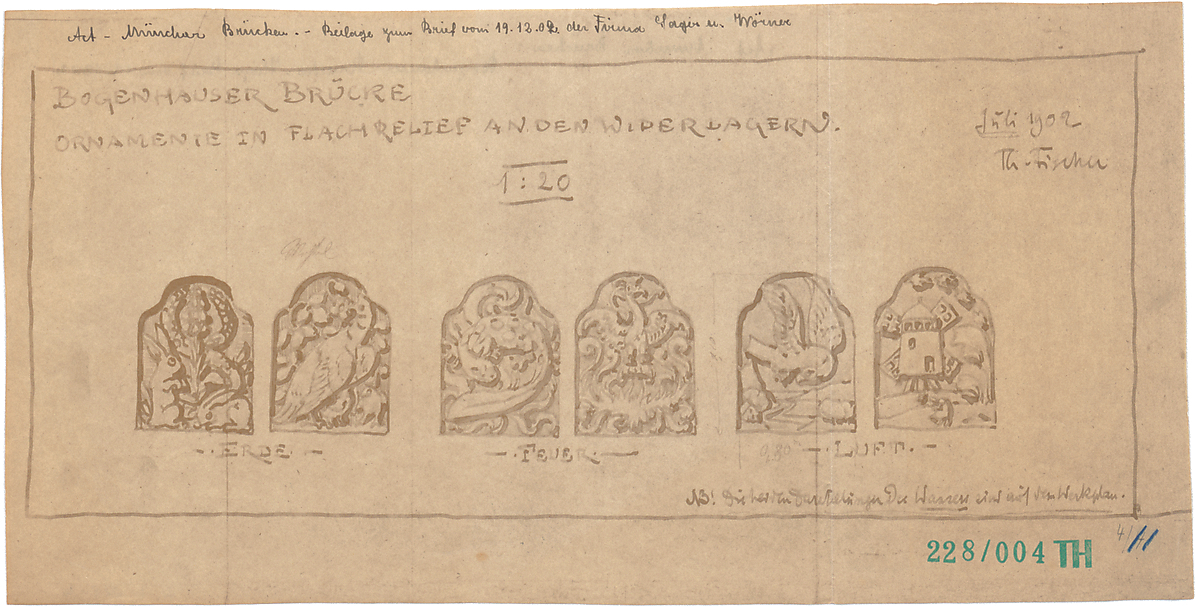 Act - Münchner Brücken. - Beilage zum Brief vom 19.12.02 der Firma Sager u. Wörner
BOGENHAUSER BRÜCKE
ORNAMENTE IN FLACHRELIEF AN DEN WIDERLAGERN.
Juli 1902
Th. Fischer
1:20
- · ERDE · -
- · FEUER · -
0,80
- · LUFT · -
NB! Die beiden Darstellungen des Wassers sind auf dem Werkplan.
4/
228/004 TH